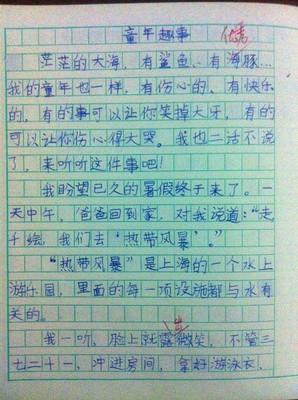 童年趣事 优
茫茫的大海，有鲨鱼、有海豚…
我的童年也一样，有伤心的、有快乐
的，有的事可以让你笑掉大牙，有的
可以让你伤心得大哭。我也二话不说
了，来听听这件事吧！
我盼望已久的暑假终于来了。一
天中午，爸爸回到家，对我说道：“走
千绘，我们去‘热带风暴’。”
“热带风暴”是上海的一个水上
游乐园，里面的每一项设施都与水有
关的。
我一听，脸上就露微笑，不管三
七二十一，冲进房间，拿好游泳衣，